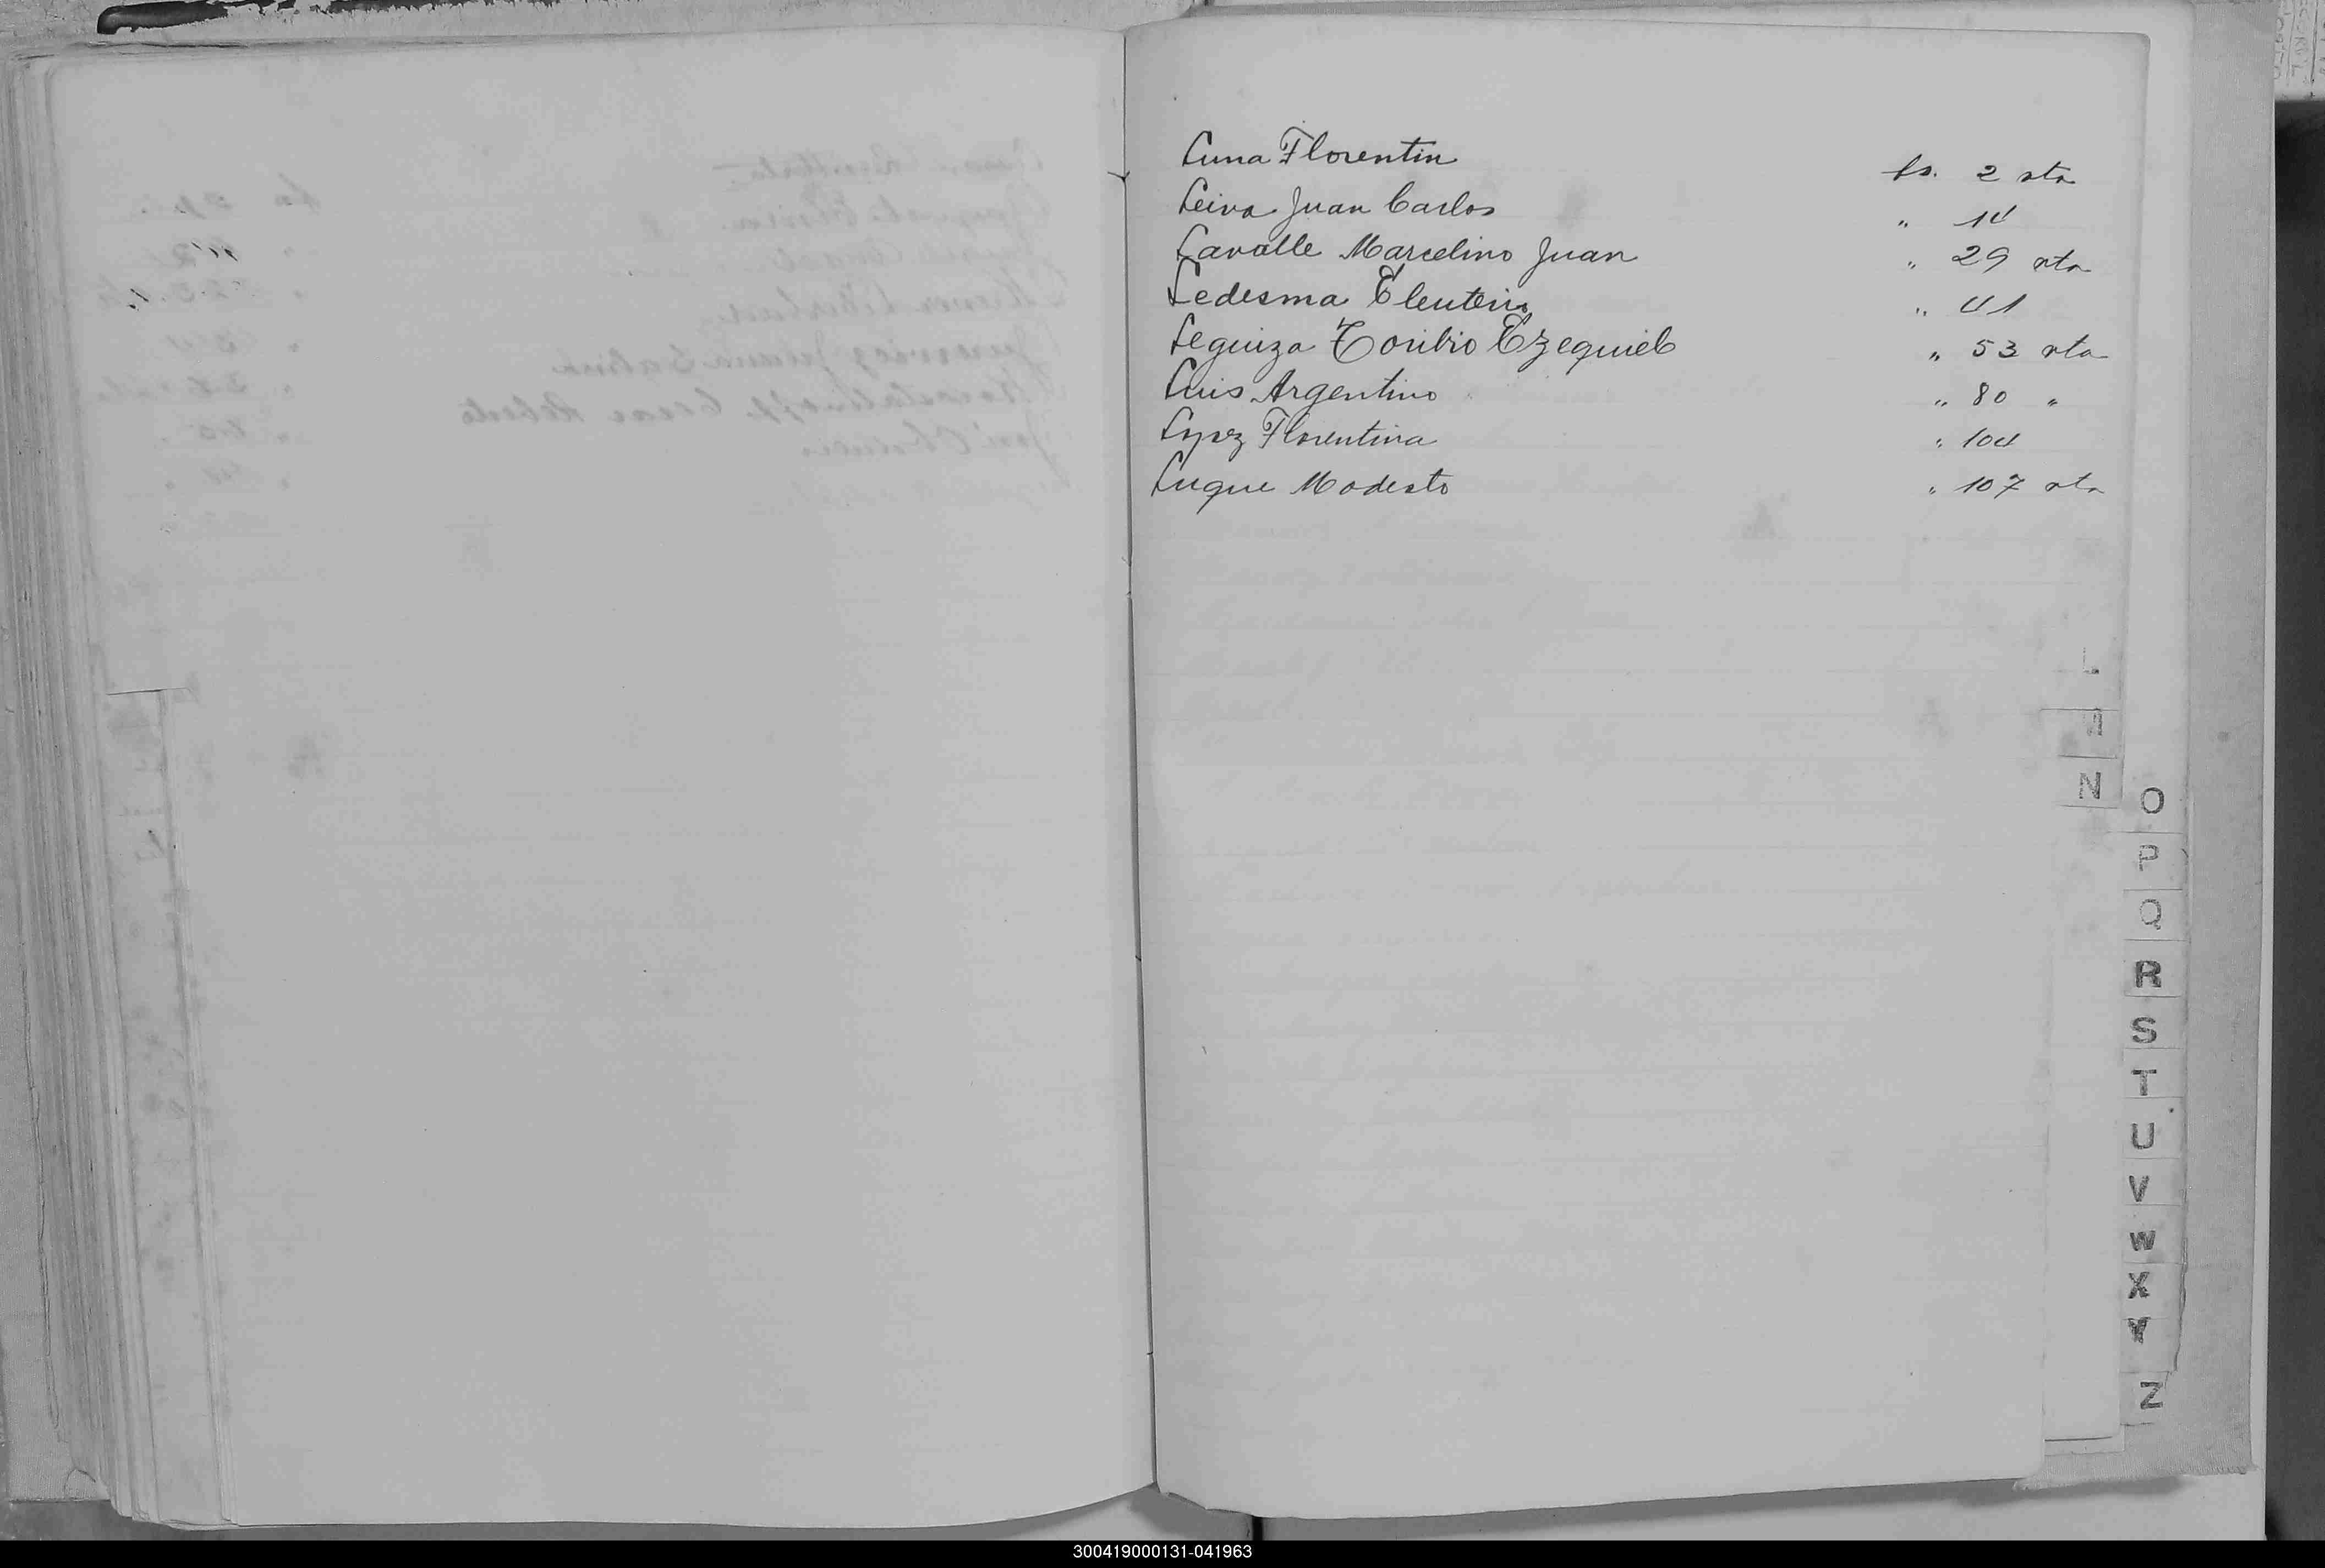 Luna Florentin fs. 2 vta
Leiva Juan Carlos " 14
Lavalle Marcelino Juan " 29 vta
Ledesma Eleuterio " 41
Leguiza Toribio Ezequiel " 53 vta
Luis Argentino " 80 "
Lopez Florentina " 104
Luque Modesto " 107 vta
L
N
O
P
Q
R
S
T
U
V
W
X
Y
Z
300419000131-041963